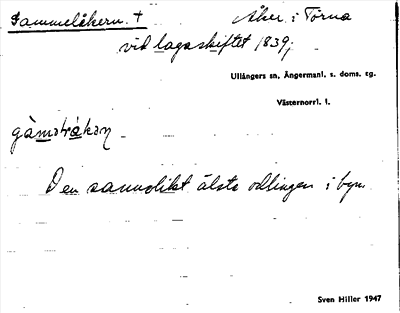 Gammelåkern. + Åker i Törna
vid lagaskiftet 1839;
Ullångers sn, Ångermanl. s. doms. sg.
Västernorrl. l.
Den sannolikt älsta odlingen i byn.
Sven Hiller 1947